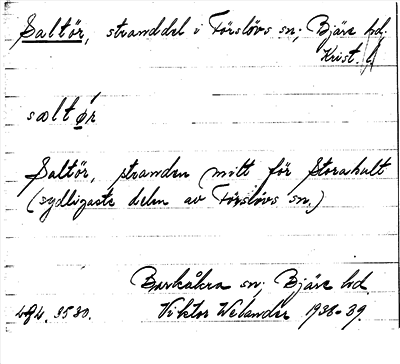 Saltör, stranddel i Förslövs sn; Bjäre hd.
Krist. l
sæltǿr
Saltör, stranden mitt för Storahult
(sydligaste delen av Förslövs sn.)
Barkåkra sn; Bjäre hd.
494. 3530. Viktor Welander 1938-39.